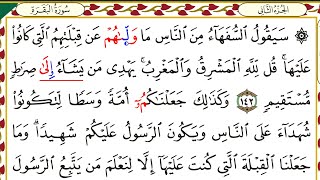 الجزء الثاني
سورة البقرة
۞ سَيَقُولُ ٱلسُّفَهَآءُ مِنَ ٱلنَّاسِ مَا وَلَّىٰهُمْ عَن قِبْلَتِهِمُ ٱلَّتِى كَانُوا۟
عَلَيْهَا ۚ قُل لِّلَّهِ ٱلْمَشْرِقُ وَٱلْمَغْرِبُ ۚ يَهْدِى مَن يَشَآءُ إِلَىٰ صِرَٰطٍ
مُّسْتَقِيمٍ ١٤٢ وَكَذَٰلِكَ جَعَلْنَٰكُمُۥٓ أُمَّةً وَسَطًا لِّتَكُونُوا۟
شُهَدَآءَ عَلَى ٱلنَّاسِ وَيَكُونَ ٱلرَّسُولُ عَلَيْكُمْ شَهِيدًا ۗ وَمَا
جَعَلْنَا ٱلْقِبْلَةَ ٱلَّتِى كُنتَ عَلَيْهَآ إِلَّا لِنَعْلَمَ مَن يَتَّبِعُ ٱلرَّسُولَ